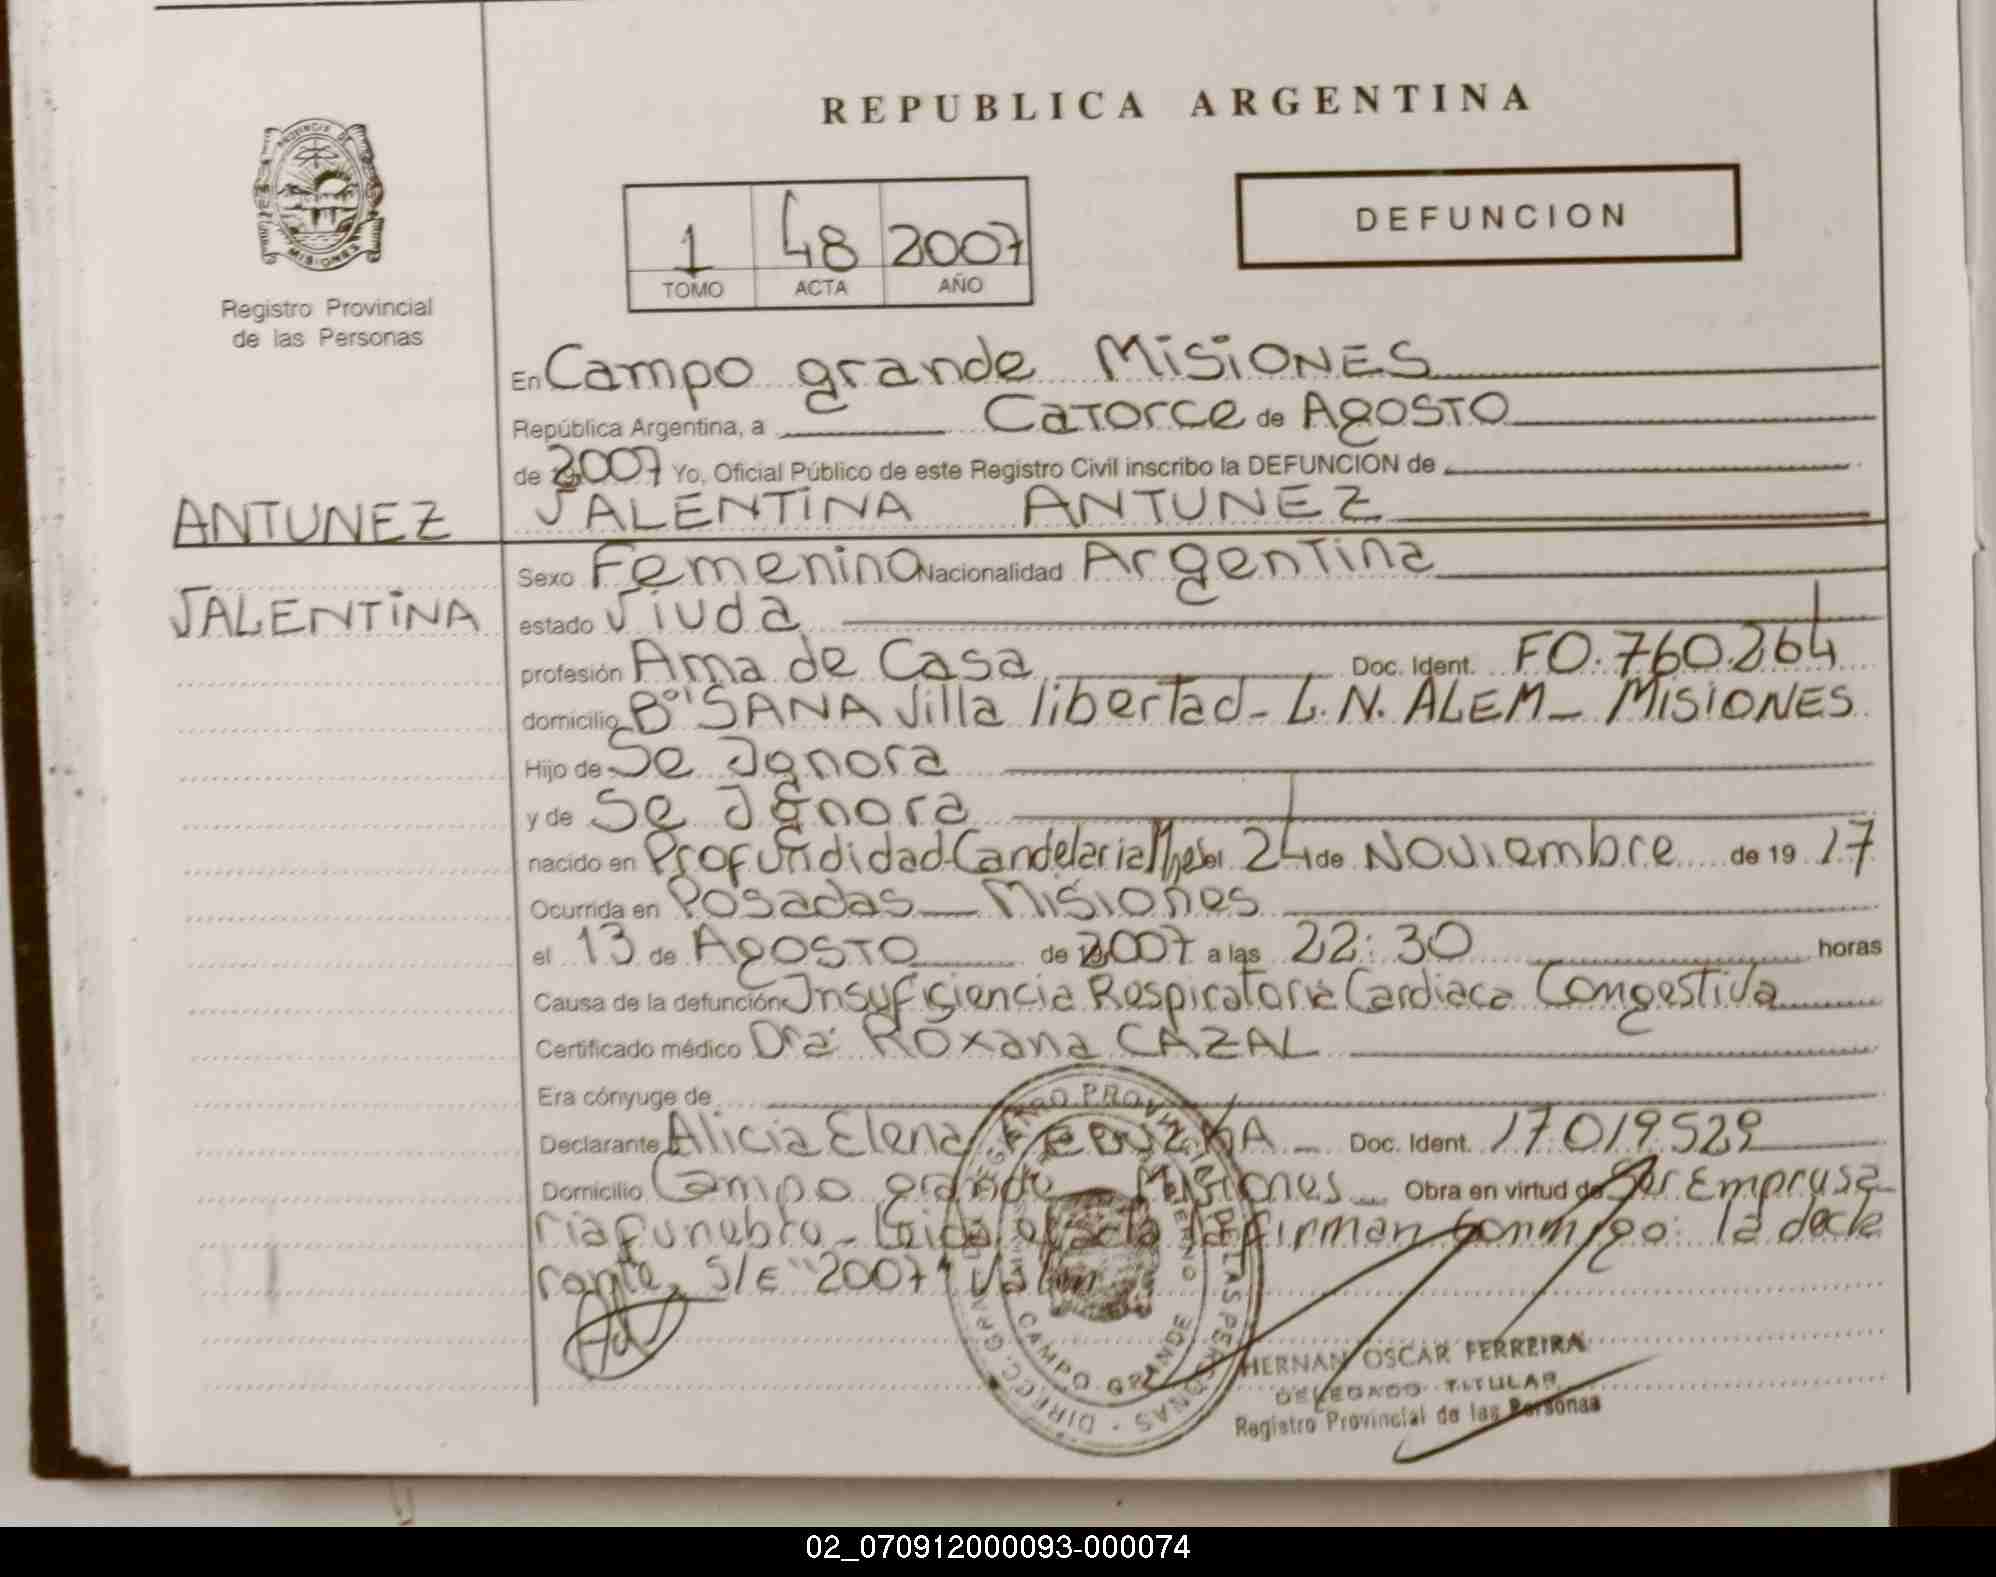 REPUBLICA ARGENTINA
PROVINCIA DE
MISIONES
Registro Provincial
de las Personas
1 48 2007
TOMO ACTA AÑO
DEFUNCION
En Campo grande MISIONES
República Argentina, a Catorce de Agosto
de 2007 Yo, Oficial Público de este Registro Civil inscribo la DEFUNCION de
ANTUNEZ
VALENTINA
VALENTINA ANTUNEZ
Sexo Femenino Nacionalidad Argentina
estado Viuda
profesión Ama de Casa Doc. Ident. F0.760.264
domicilio Bº SANA Villa libertad - L.N. ALEM - MISIONES
Hijo de Se Ignora
y de Se Ignora
nacido en Profundidad-Candelaria el 24 de Noviembre de 19 17
Ocurrida en Posadas - Misiones
el 13 de Agosto de 2007 a las 22:30 horas
Causa de la defunción Insuficiencia Respiratoria Cardiaca Congestiva
Certificado médico Dra. Roxana CAZAL
Era cónyuge de
Declarante Alicia Elena Doc. Ident. 17.019.529
Domicilio Campo grande Misiones Obra en virtud de Ser Empresa
ria funebre - Leida el acta la firman conmigo: la decla
rante, S/E "2007" Vale
CAMPO GRANDE
HERNAN OSCAR FERREIRA
DELEGADO TITULAR
Registro Provincial de las Personas
02_070912000093-000074